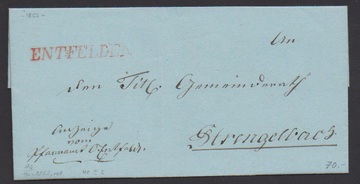 1852
ENTFELDEN
An
den Titl. Gemeinderath
Strengelbach
Anzeige
vom
Pfarramt Entfelden
70.-